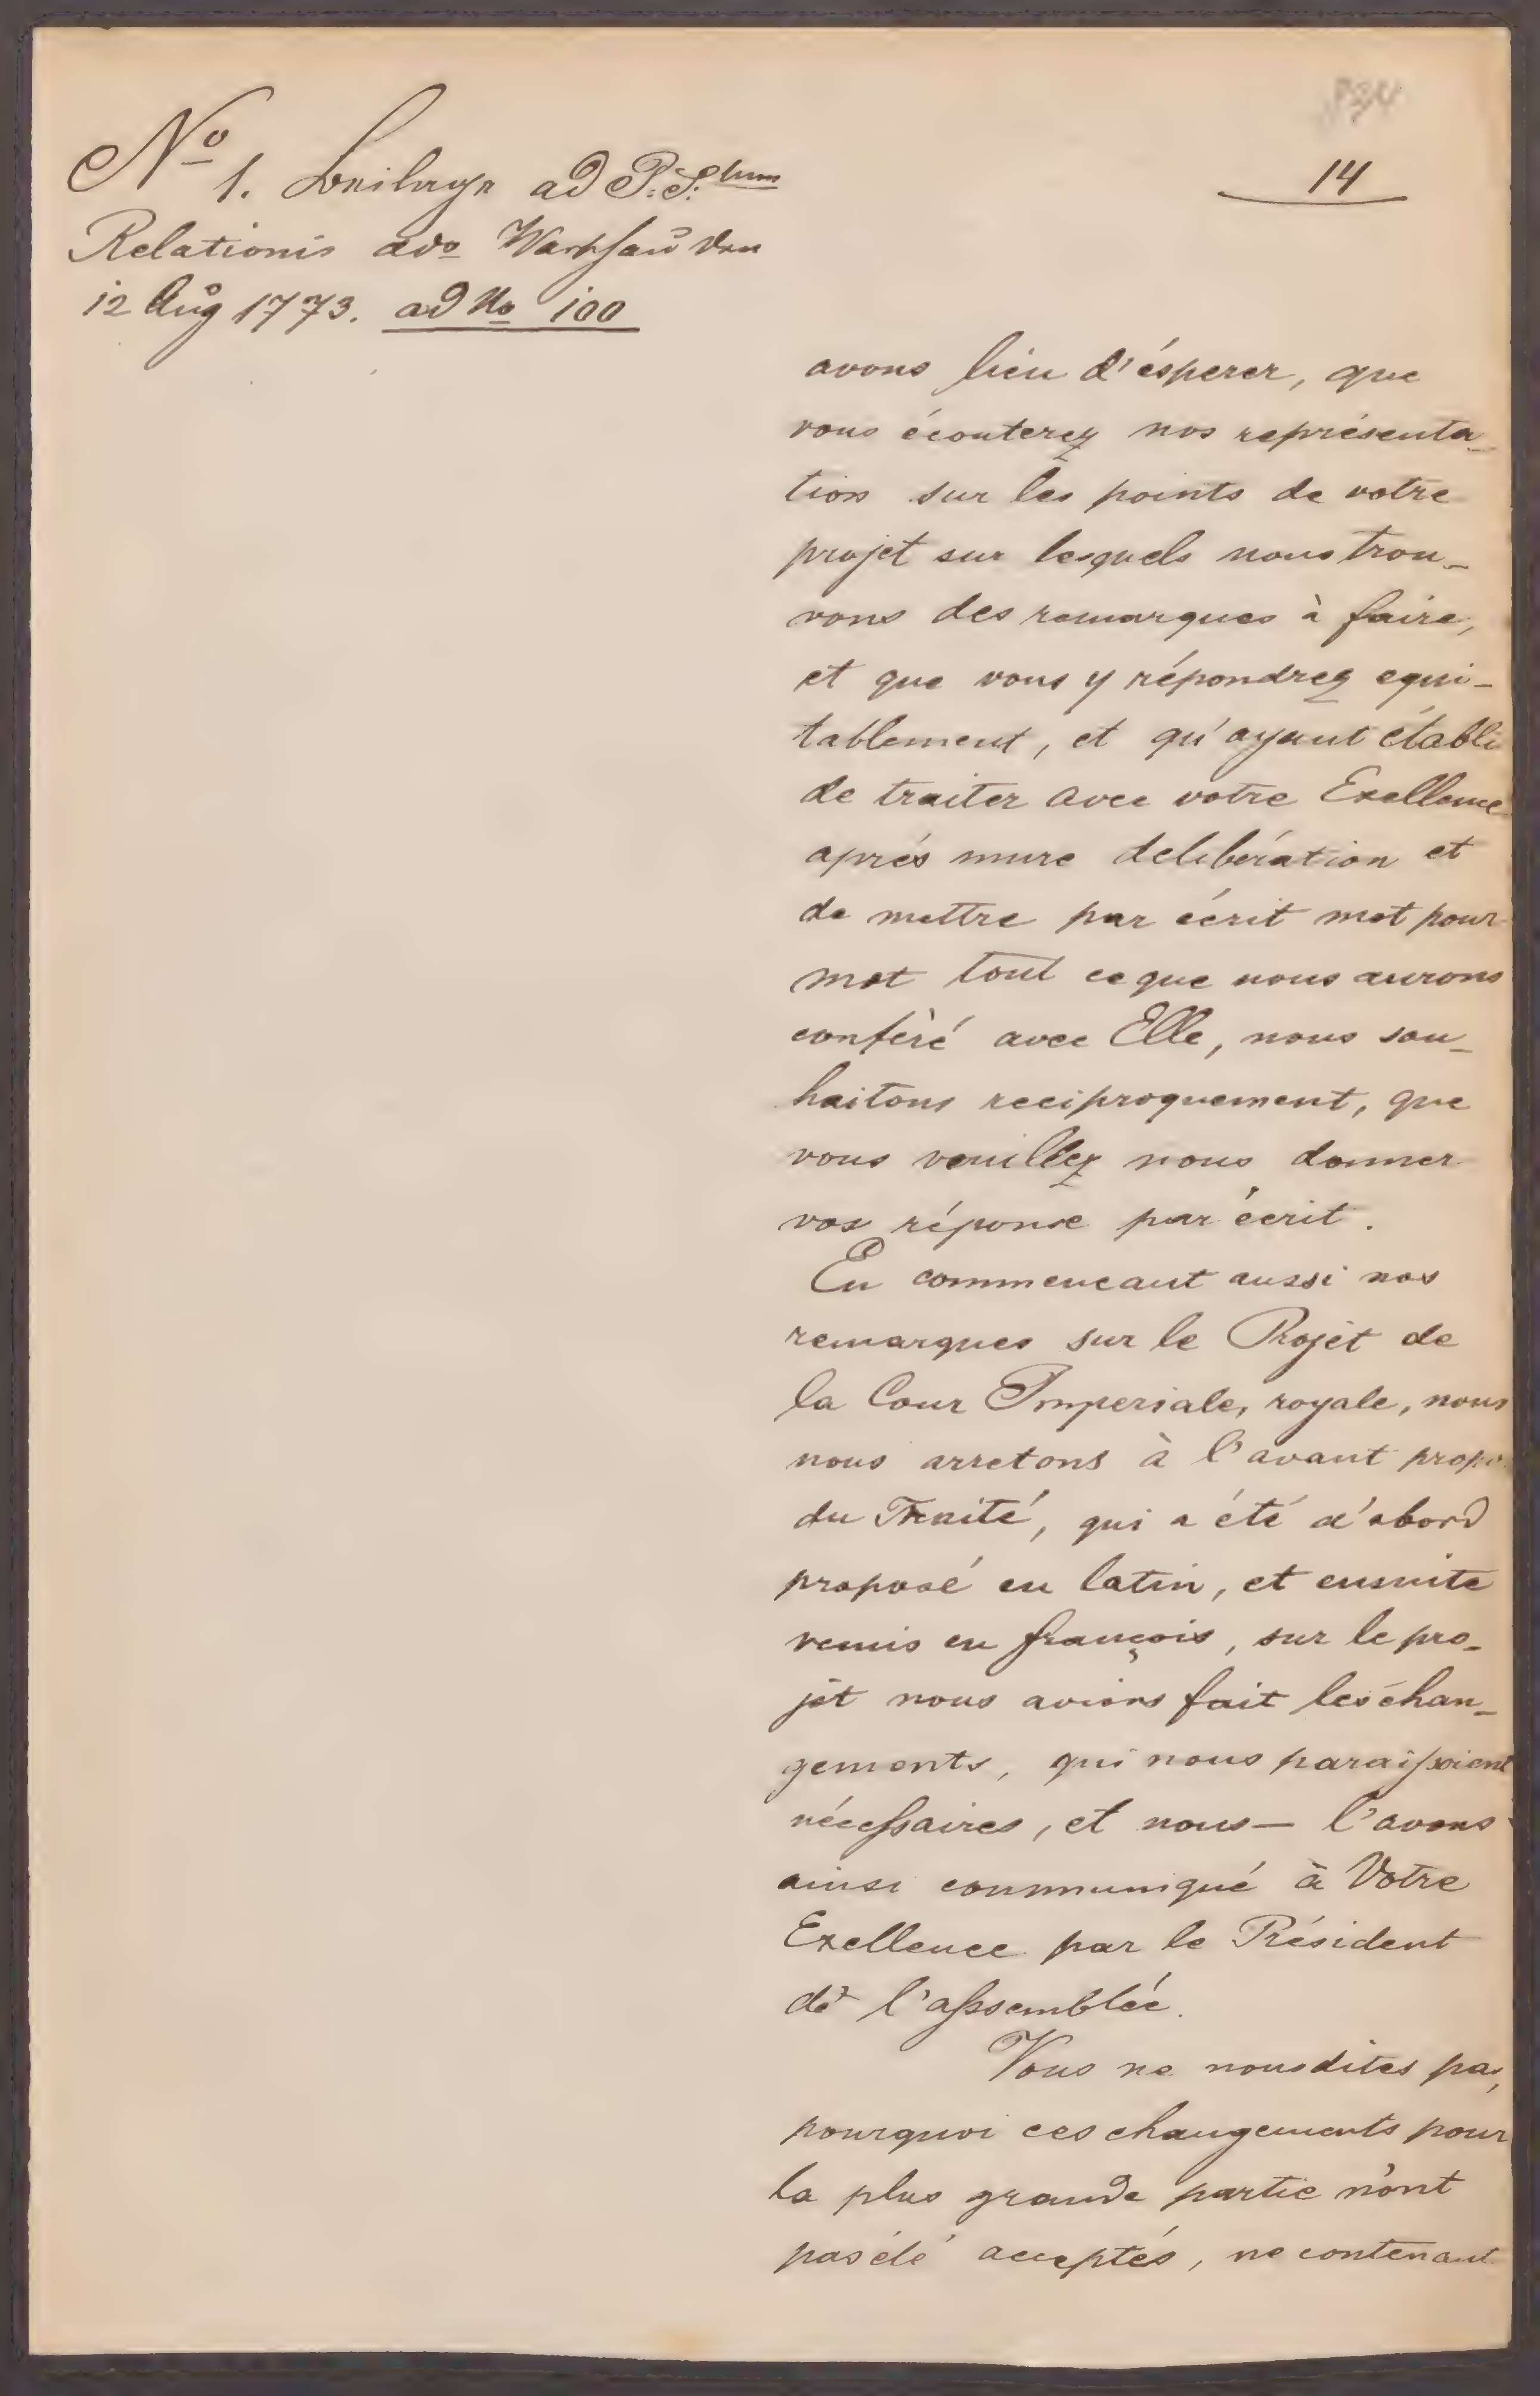 No 1. Beilage ad P.S.tum
Relationis ddo Warschau den
12 Aug 1773. ad No 100
14
avons lieu d'ésperer, que
vous écouterez nos représenta-
tion sur les points de votre
projet sur lesquels nous trou-
vons des remarques à faire,
et que vous y répondrez equi-
tablement, et qu'ayant établi
de traiter avec votre Exellence
après mure delibération et
de mettre par écrit mot pour
mot tout ce que nous aurons
conféré avec Elle, nous sou-
haitons reciproquement, que
vous veuillez nous donner
vos réponse par écrit.
En commencant aussi nos
remarques sur le Projèt de
la Cour Imperiale, royale, nous
nous arretons à l'avant propos
du Traité, qui a été d'abord
proposé en latin, et ensuite
remis en françois, sur le pro-
jèt nous avions fait les chan-
gements, qui nous paraissoient
nécessaires, et nous — l'avons
ainsi communiqué à Votre
Exellence par le Président
de l'assemblée.
Vous ne nous dites pas,
pourquoi ces changements pour
la plus grande partie n'ont
pas été acceptés, ne contenant